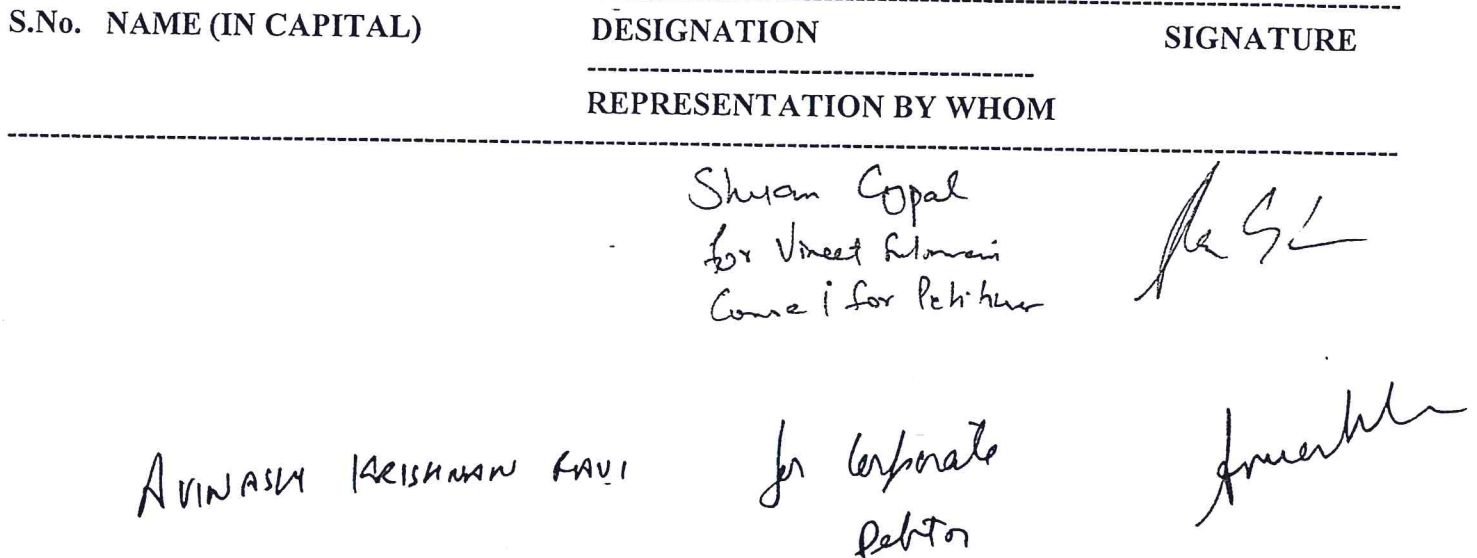 S.No. NAME (IN CAPITAL) DESIGNATION SIGNATURE
REPRESENTATION BY WHOM
Shyam Gopal
for Vineet
Counsel for Petitioner
AVINASH KRISHNAN RAVI for Corporate
Debtor